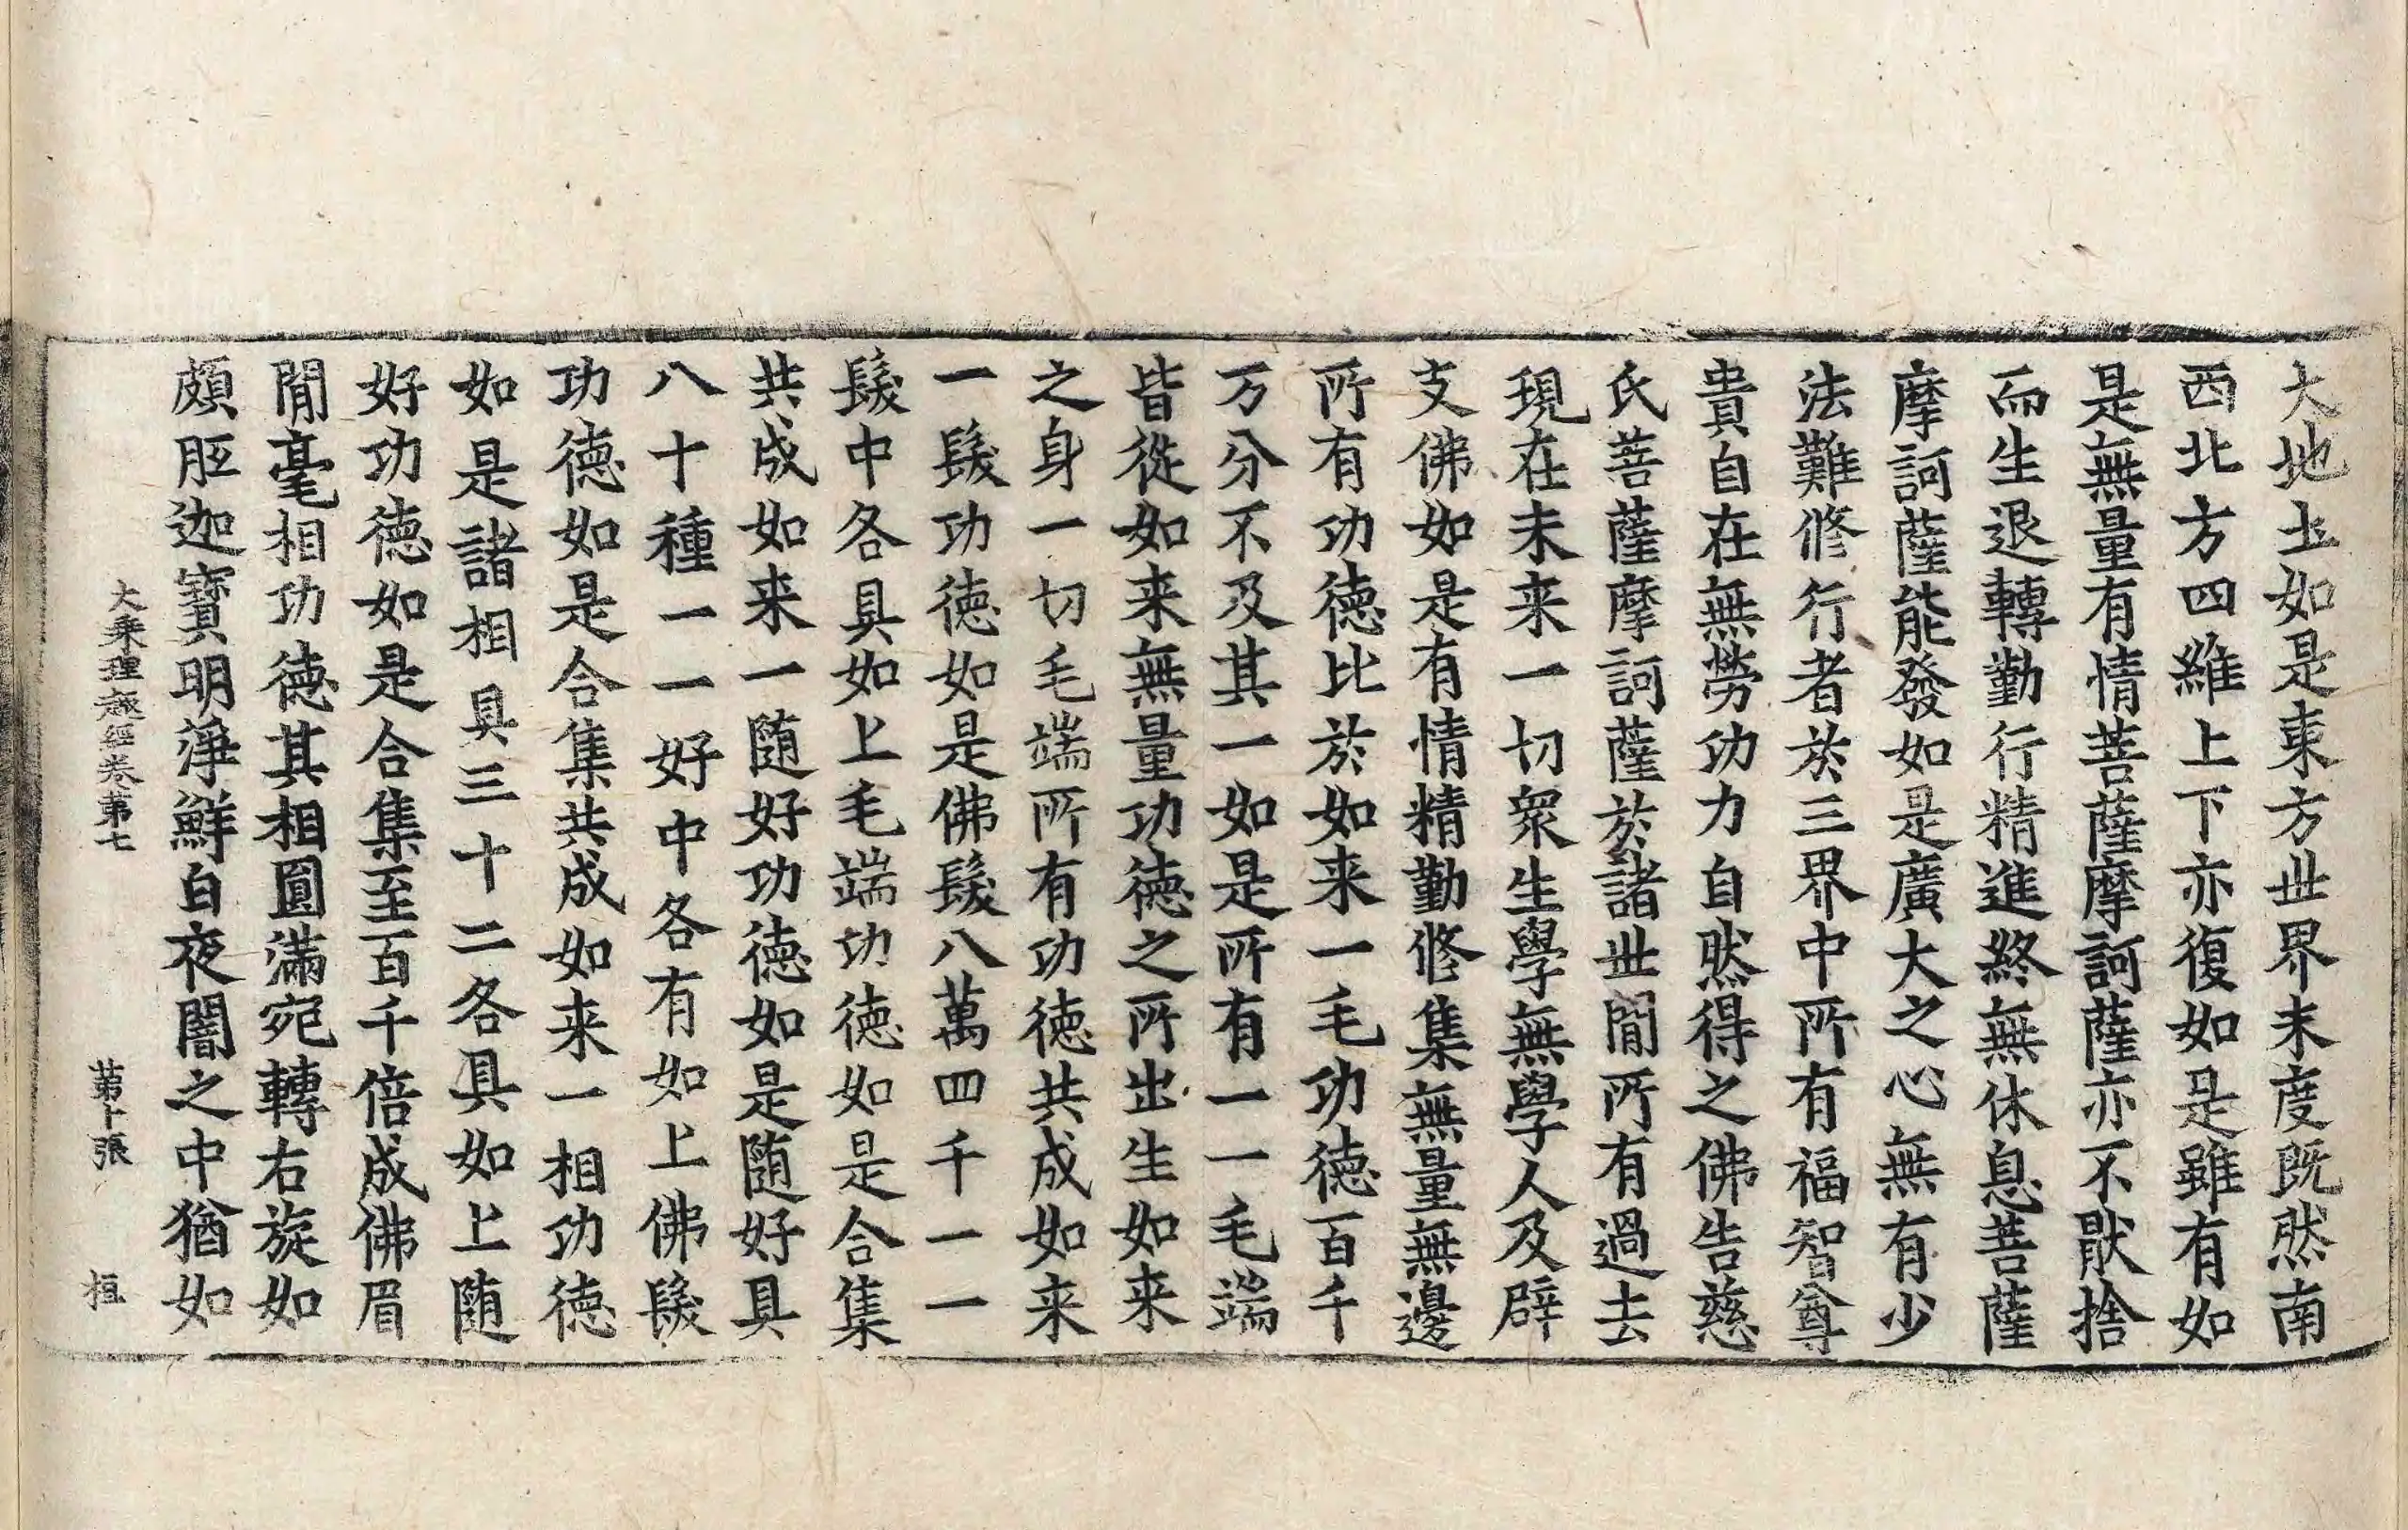 大地土如是東方世界未度既然南
西北方四維上下亦復如是雖有如
是無量有情菩薩摩訶薩亦不猒捨
而生退轉勤行精進終無休息菩薩
摩訶薩能發如是廣大之心無有少
法難修行者於三界中所有福智尊
貴自在無勞功力自然得之佛告慈
氏菩薩摩訶薩於諸世閒所有過去
現在未来一切眾生學無學人及辟
支佛如是有情精勤修集無量無邊
所有功德比於如来一毛功德百千
万分不及其一如是所有一一毛端
皆從如来無量功德之所出生如来
之身一切毛端所有功德共成如来
一髮功德如是佛髮八萬四千一一
髮中各具如上毛端功德如是合集
共成如来一随好功德如是随好具
八十種一一好中各有如上佛髮
功德如是合集共成如来一相功德
如是諸相具三十二各具如上随
好功德如是合集至百千倍成佛眉
閒毫相功德其相圓滿宛轉右旋如
頗胝迦寶明淨鮮白夜闇之中猶如
大乘理趣經卷第七 第十張 桓